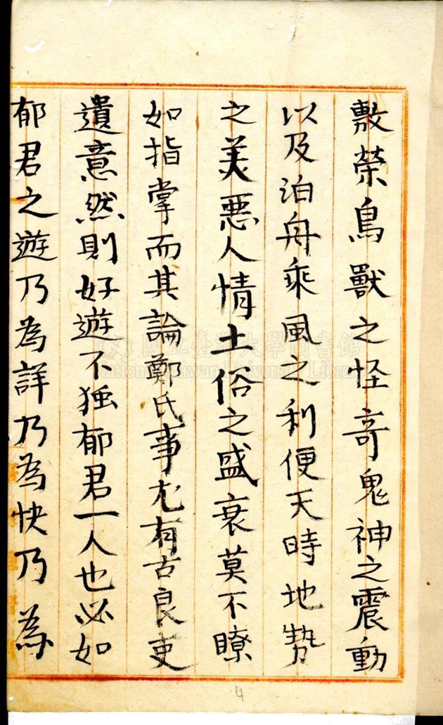 敷榮鳥獸之怪奇鬼神之震動
以及泊舟乘風之利便天時地勢
之美惡人情土俗之盛衰莫不瞭
如指掌而其論鄭氏事尤有古良吏
遺意然則好遊不独郁君一人也必如
郁君之遊乃為詳乃為快乃為
4